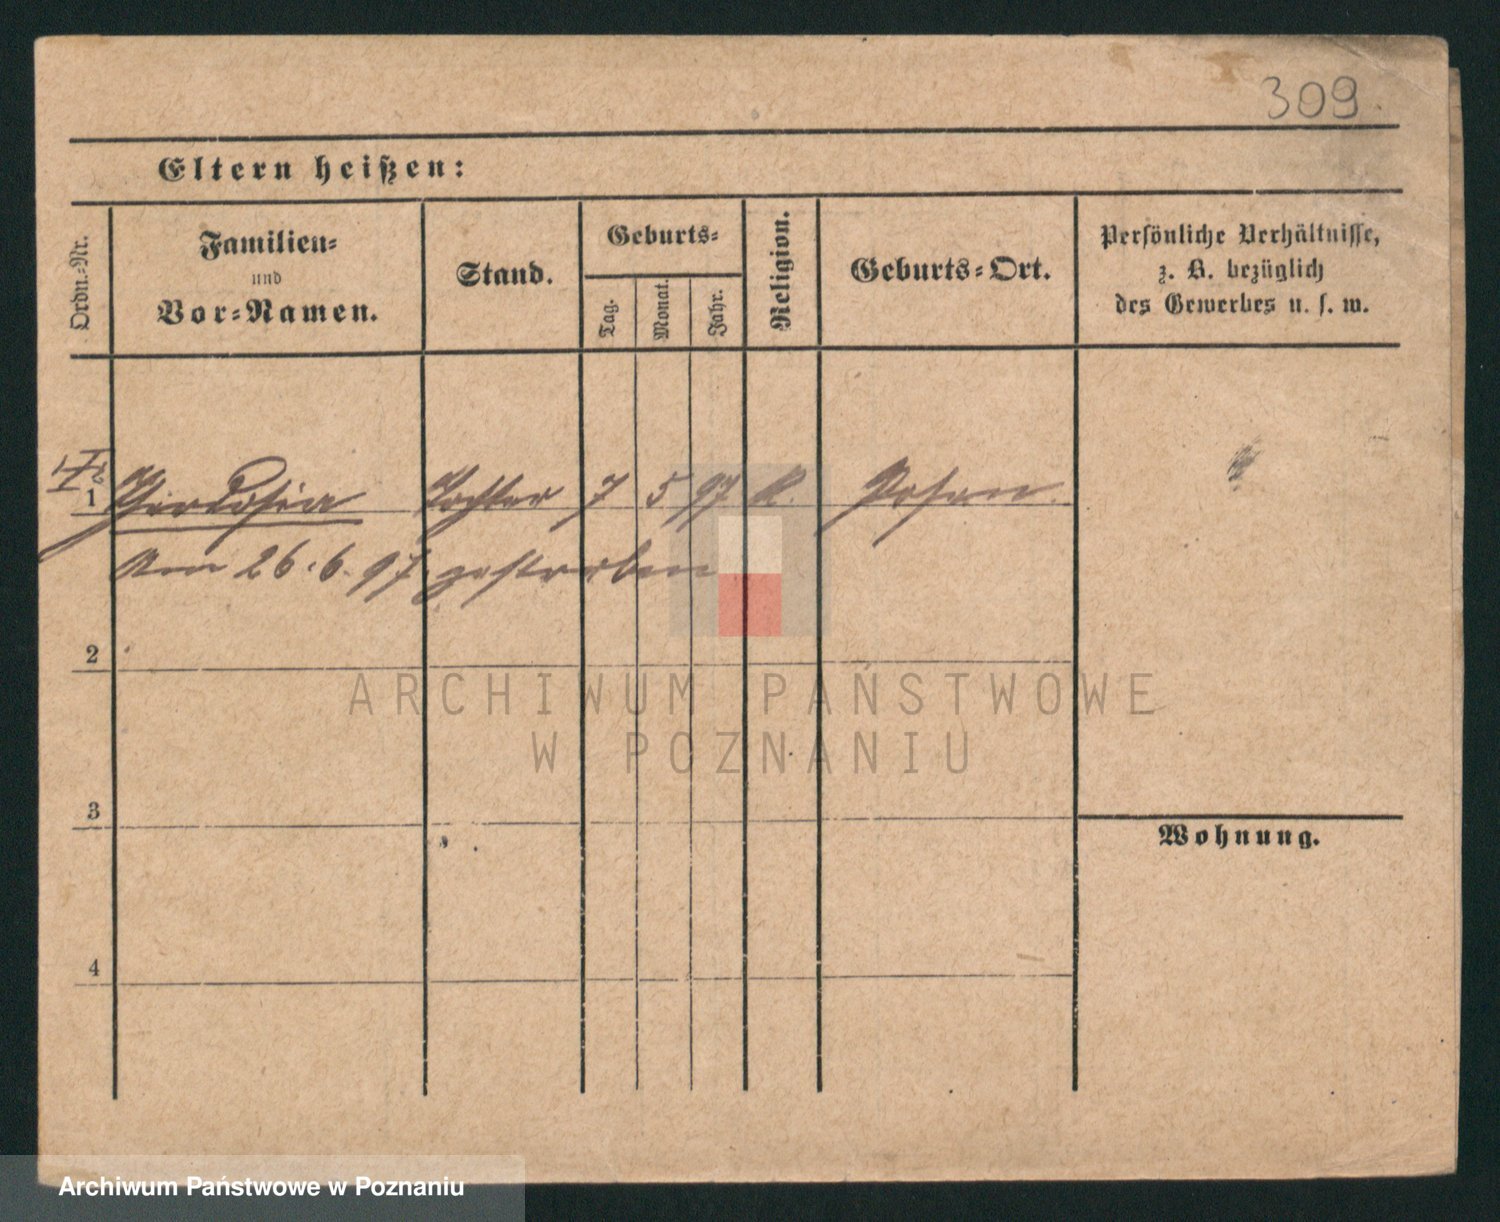 309.
Eltern heißen:
Ordn.-Nr.
Familien-
und
Vor-Namen.
Stand.
Geburts-
Tag.
Monat.
Jahr.
Religion.
Geburts-Ort.
Persönliche Verhältnisse,
z. B. bezüglich
des Gewerbes u. s. w.
1 Tochter 7 5 97 K. Posen.
Am 26.6.97 gestorben
2
3
4
Wohnung.
ARCHIWUM PAŃSTWOWE
W POZNANIU
Archiwum Państwowe w Poznaniu